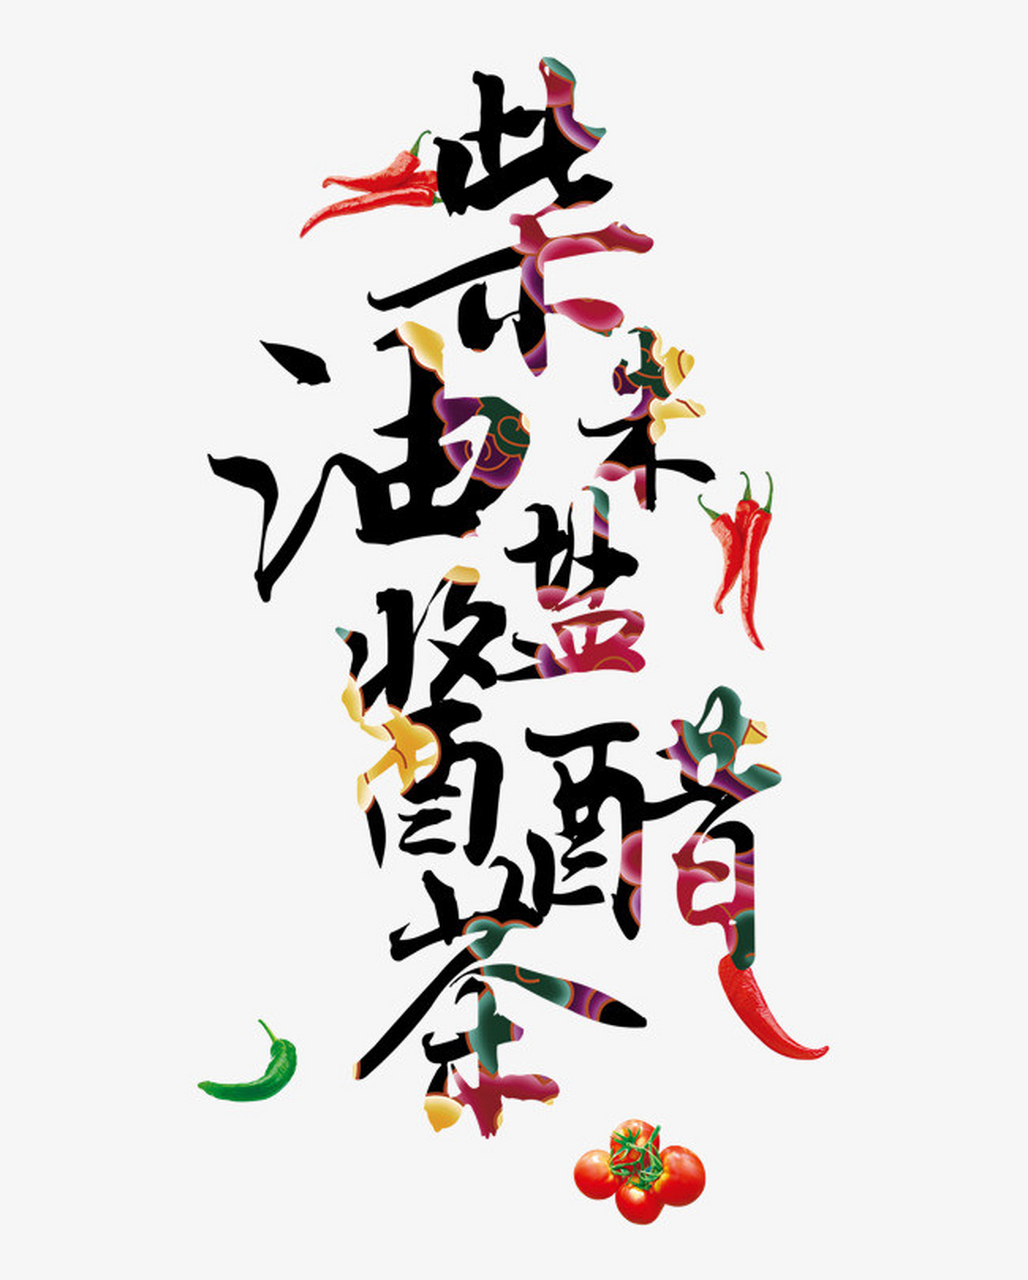 柴
米
油
盐
酱
醋
茶